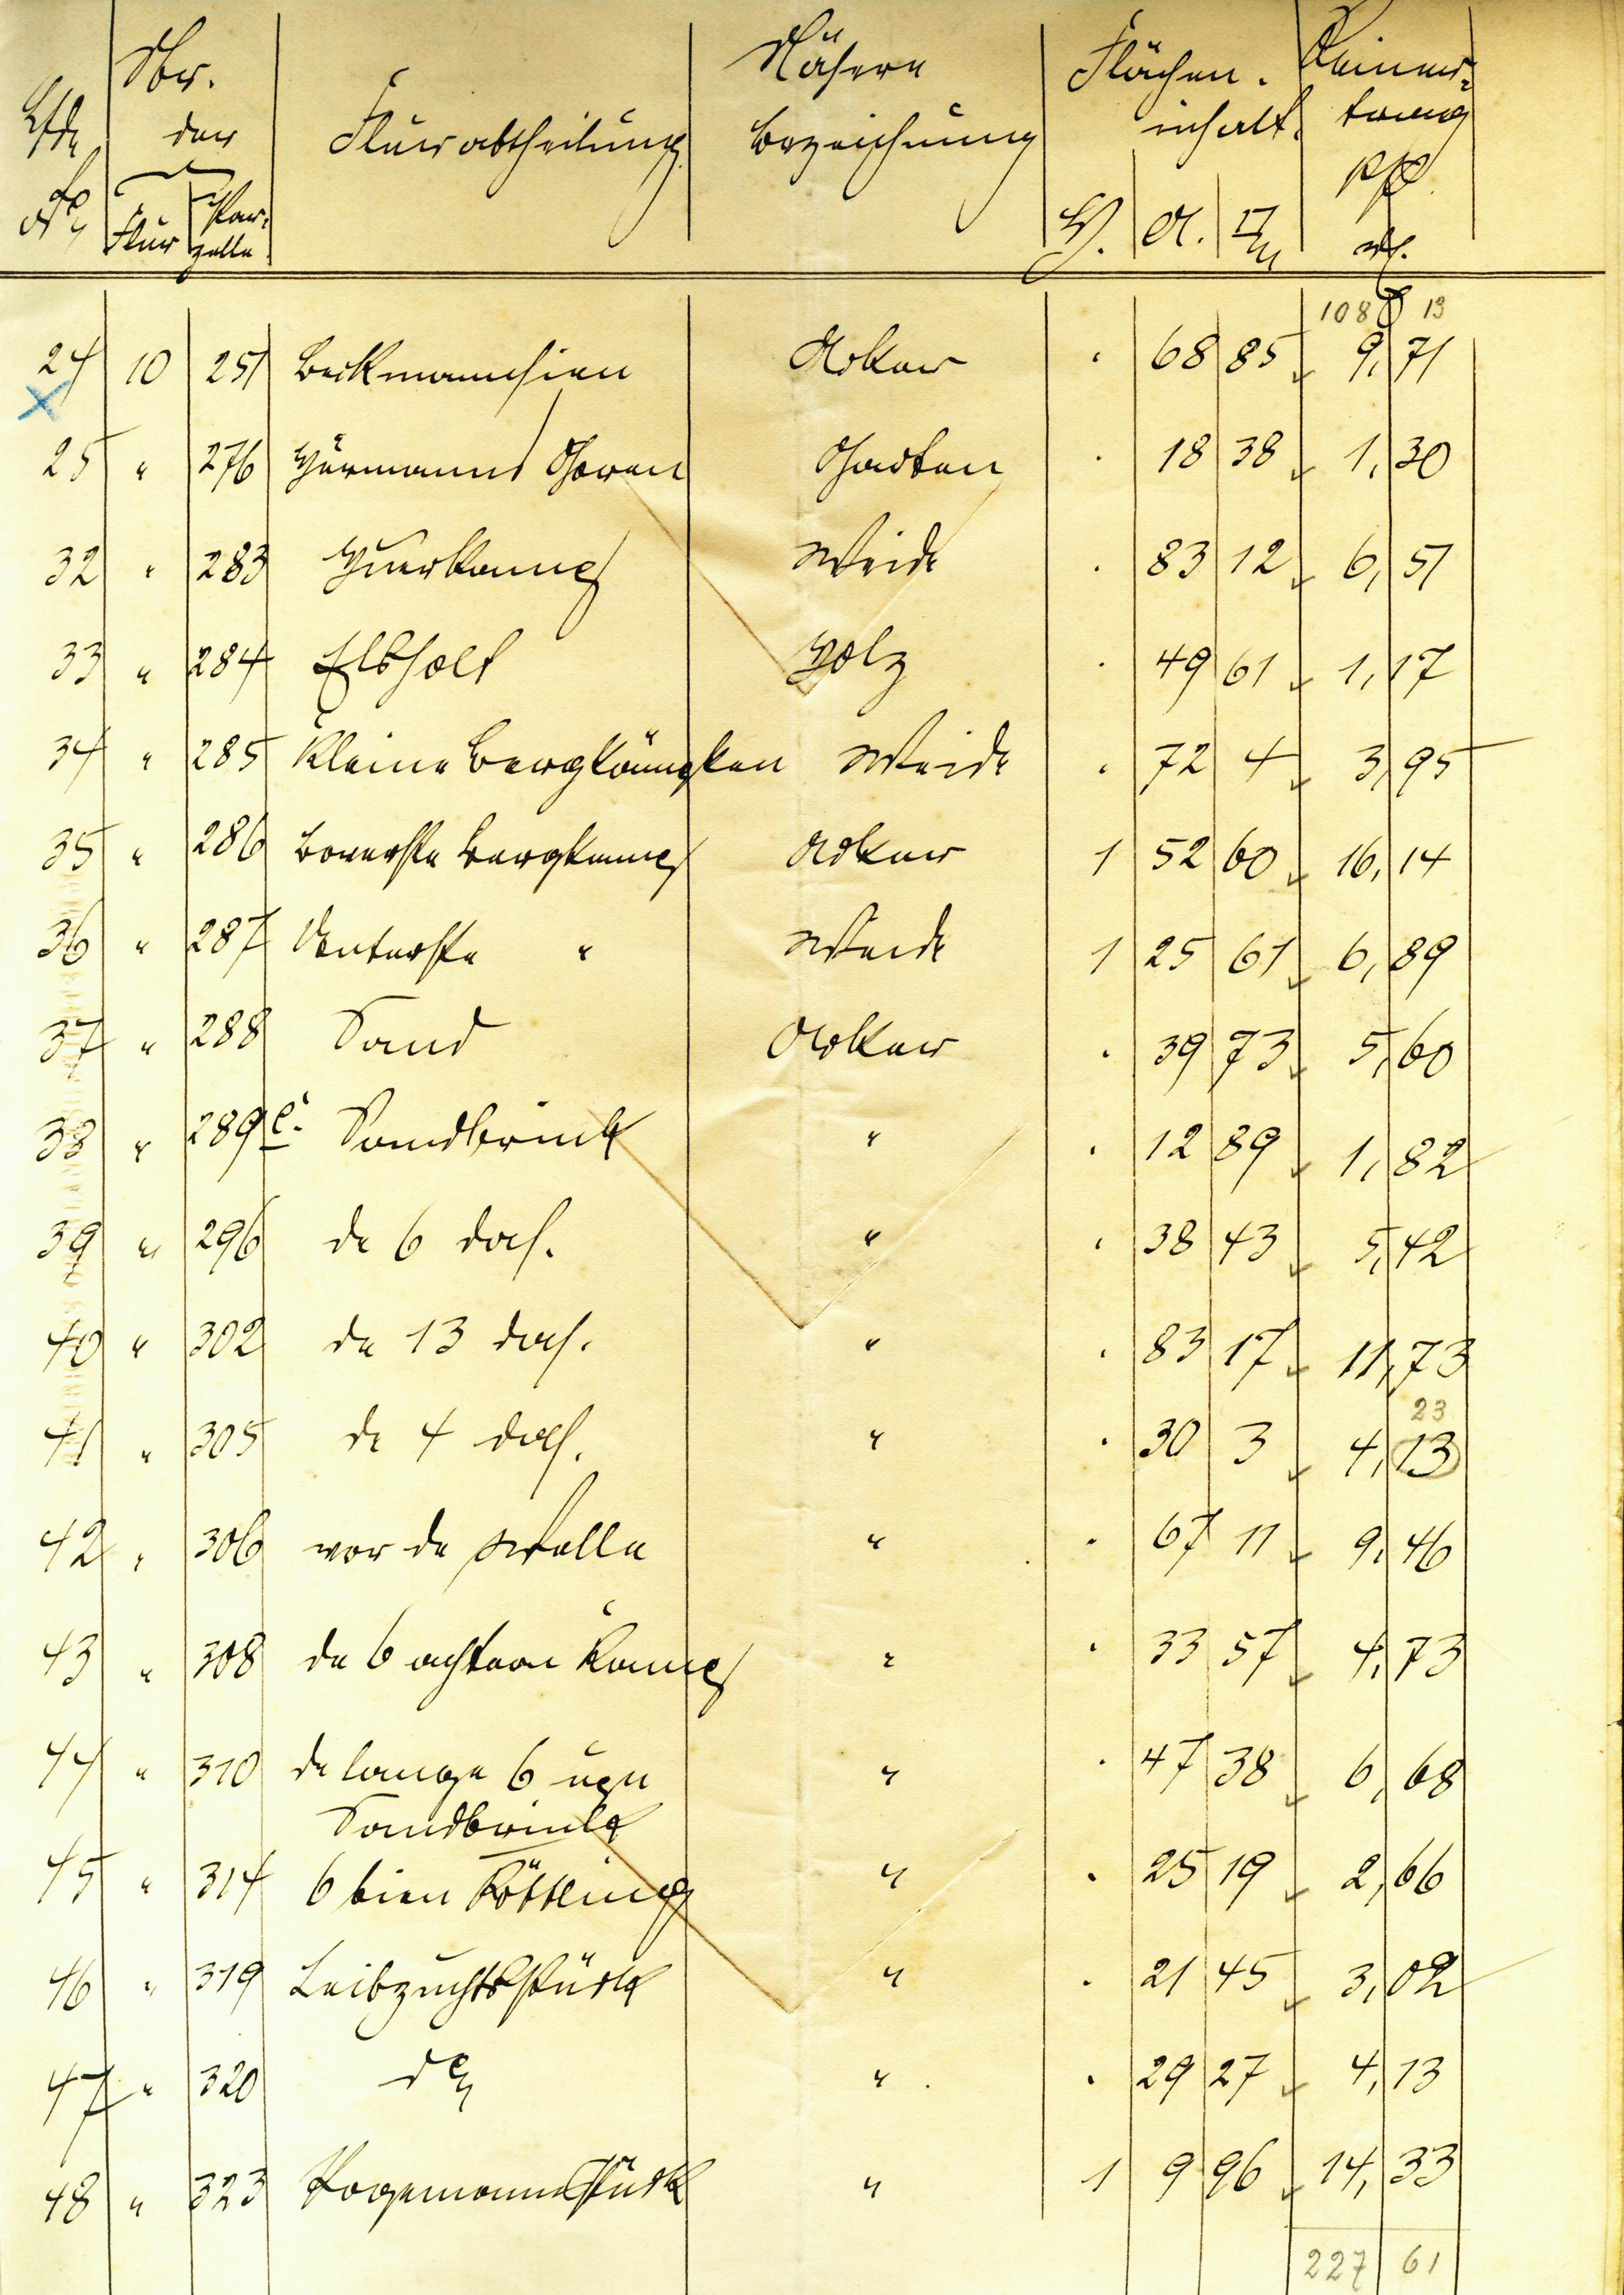 Lfde № | Nr. der Flur | Par-zelle | Flurabtheilung | Nähere Bezeichnung | Flächen-inhalt. H. A. □m | Reiner-trag
108 13
24 10 251 Beckmannsien Acker . 68 85 9,71
25 " 276 Hürmanns Garten . 18 38 1,30
32 " 283 Weide . 83 12 6,51
33 " 284 Elbholt Holz . 49 61 1,17
34 " 285 Kleine Bergkämpken Weide . 72 4 3,95
35 " 286 Boverste Bergkamp Acker 1 52 60 16,14
36 " 287 Unterste " Weide 1 25 61 6,89
37 " 288 Sand Acker . 39 73 5,60
38 " 289 Sandbrink " . 12 89 1,82
39 " 296 de 6 das. " . 38 43 5,42
40 " 302 de 13 das. " . 83 17 11,73
23
41 " 305 de 4 das. " . 30 3 4,13
42 " 306 vor de Welle " . 67 11 9,46
43 " 308 de 6 achtern Kamp " . 33 57 4,73
44 " 310 de lange 6 upn " . 47 38 6,68
Sandbrink
45 " 314 6 bien Kötting " . 25 19 2,66
46 " 319 Leibzuchtsstück " . 21 45 3,02
47 " 320 do " . 29 27 4,13
48 " 323 " 1 9 96 14,33
227 61